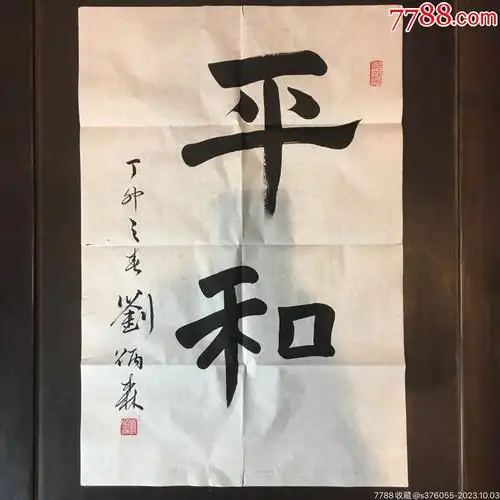 7788.com
平和
丁卯之春
劉炳森
7788收藏@s376055-2023.10.03